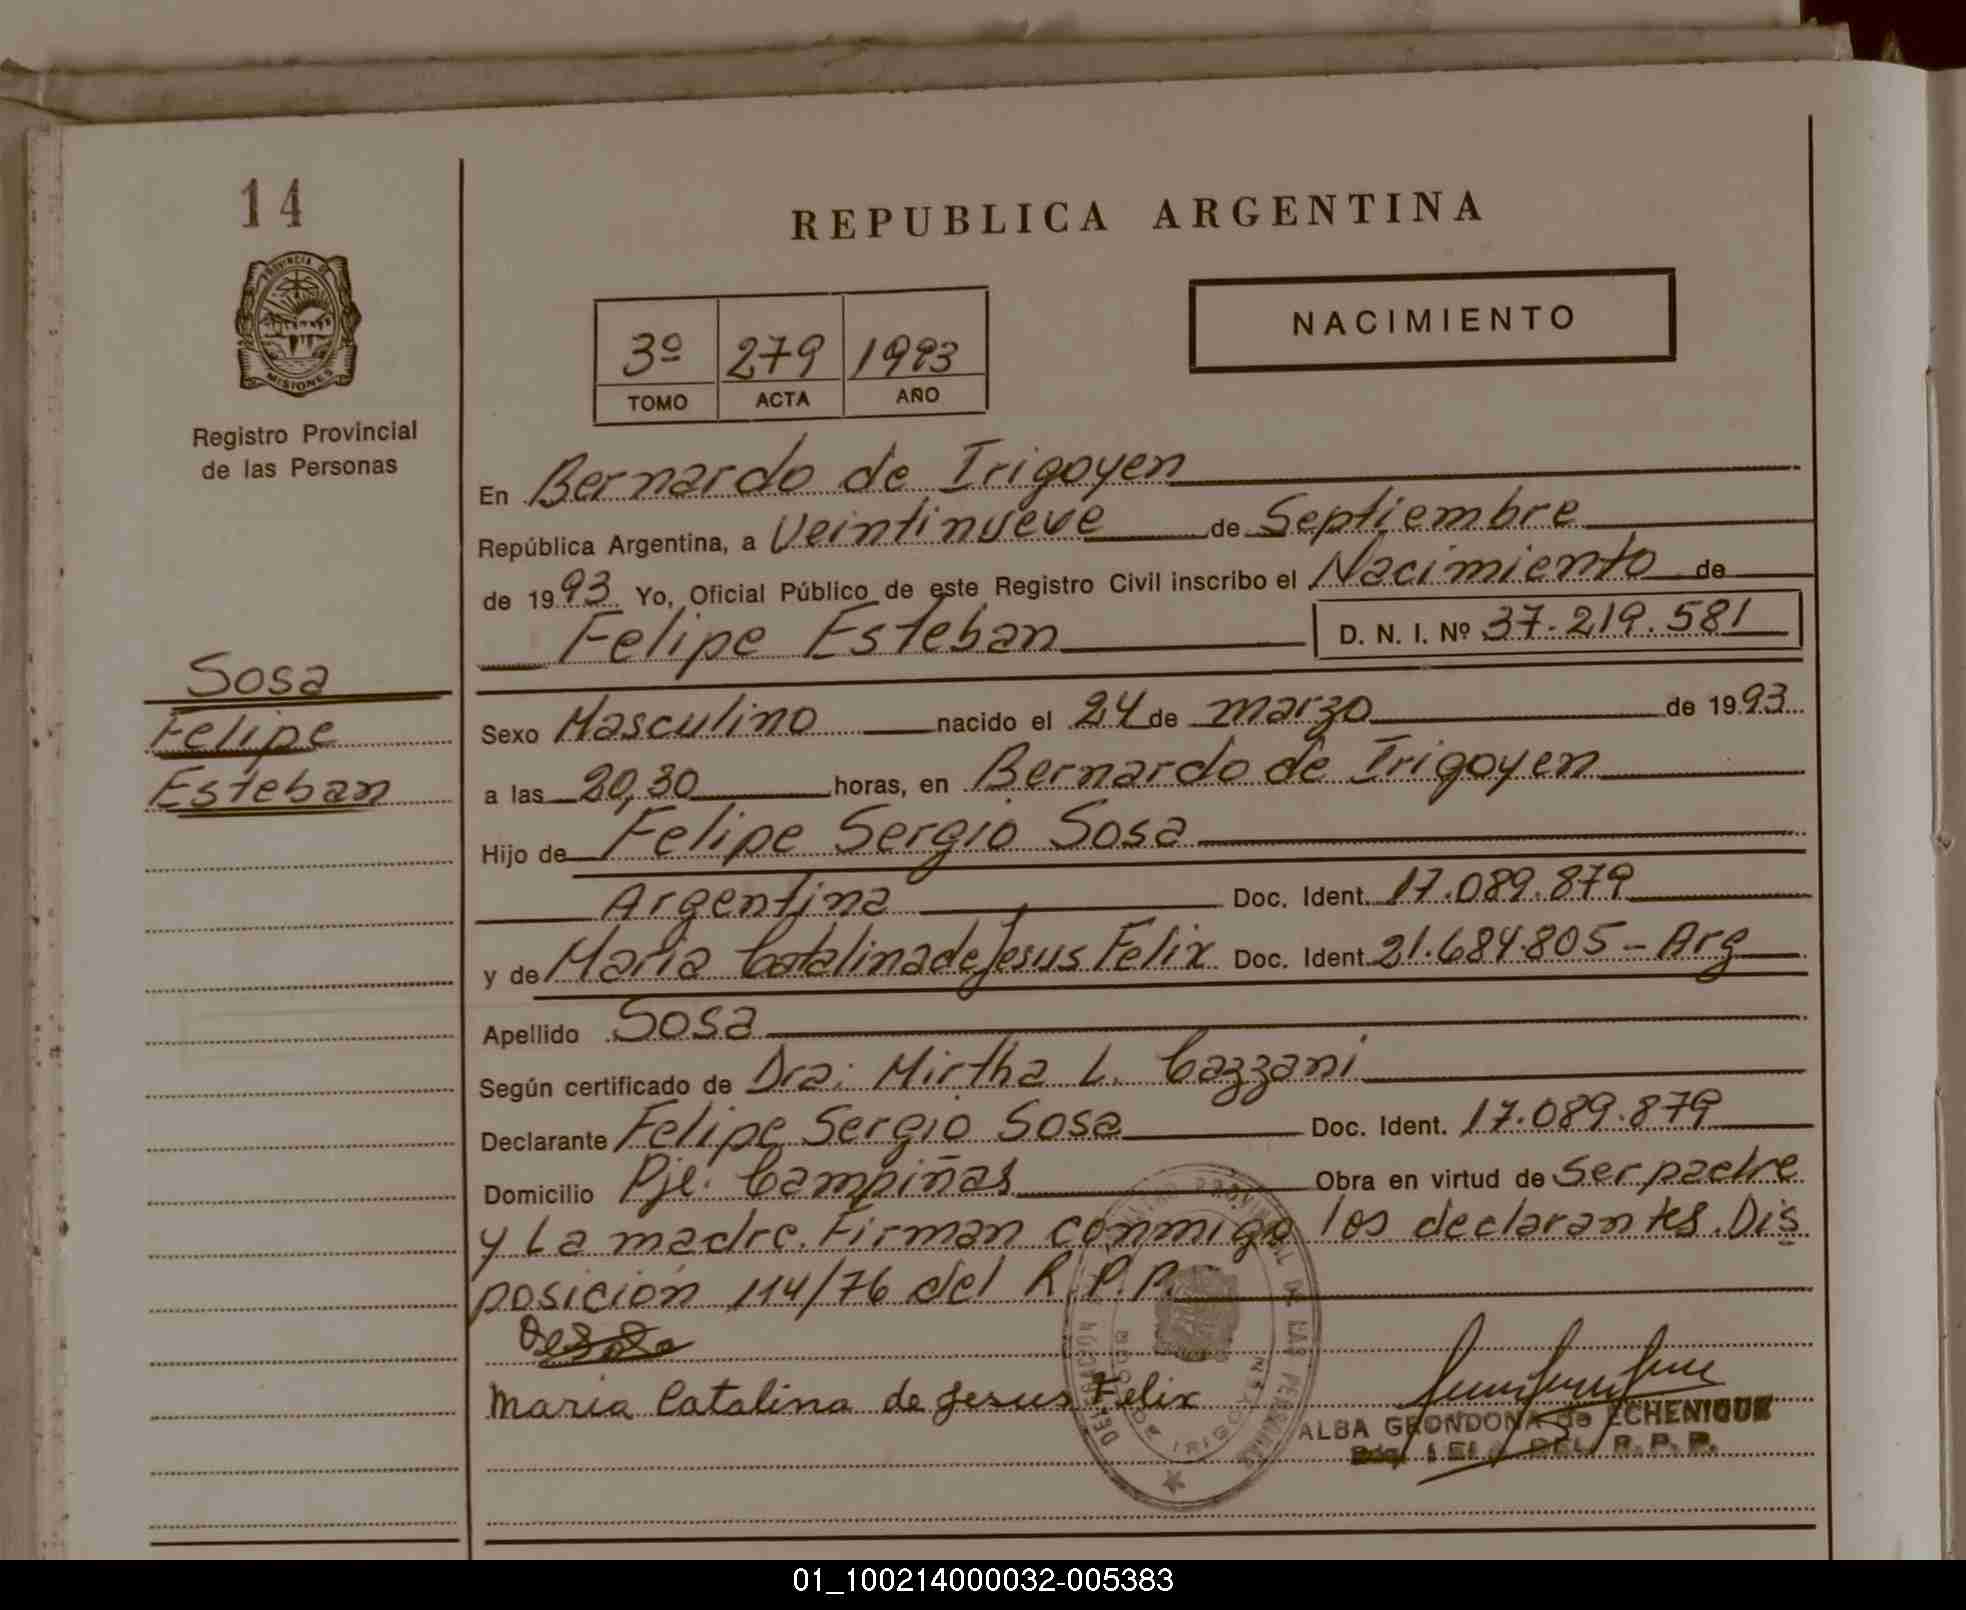 14
PROVINCIA DE
MISIONES
Registro Provincial
de las Personas
Sosa
Felipe
Esteban
REPUBLICA ARGENTINA
NACIMIENTO
3º 279 1993
TOMO ACTA AÑO
En Bernardo de Irigoyen
República Argentina, a Veintinueve de Septiembre
de 1993 Yo, Oficial Público de este Registro Civil inscribo el Nacimiento de
Felipe Esteban D. N. I. Nº 37.219.581
Sexo Masculino nacido el 24 de marzo de 1993
a las 20,30 horas, en Bernardo de Irigoyen
Hijo de Felipe Sergio Sosa
Argentina Doc. Ident. 17.089.879
y de Maria Catalina de Jesus Felix Doc. Ident. 21.684.805 - Arg
Apellido Sosa
Según certificado de Dra: Mirtha L. Cazzani
Declarante Felipe Sergio Sosa Doc. Ident. 17.089.879
Domicilio Pje. Campiñas Obra en virtud de Ser padre
y La madre. Firman conmigo los declarantes. Dis
posición 114/76 del R.P.P.
Maria Catalina de Jesus Felix
ALBA GRONDONA de ECHENIQUE
DEL R. P. P.
01_100214000032-005383